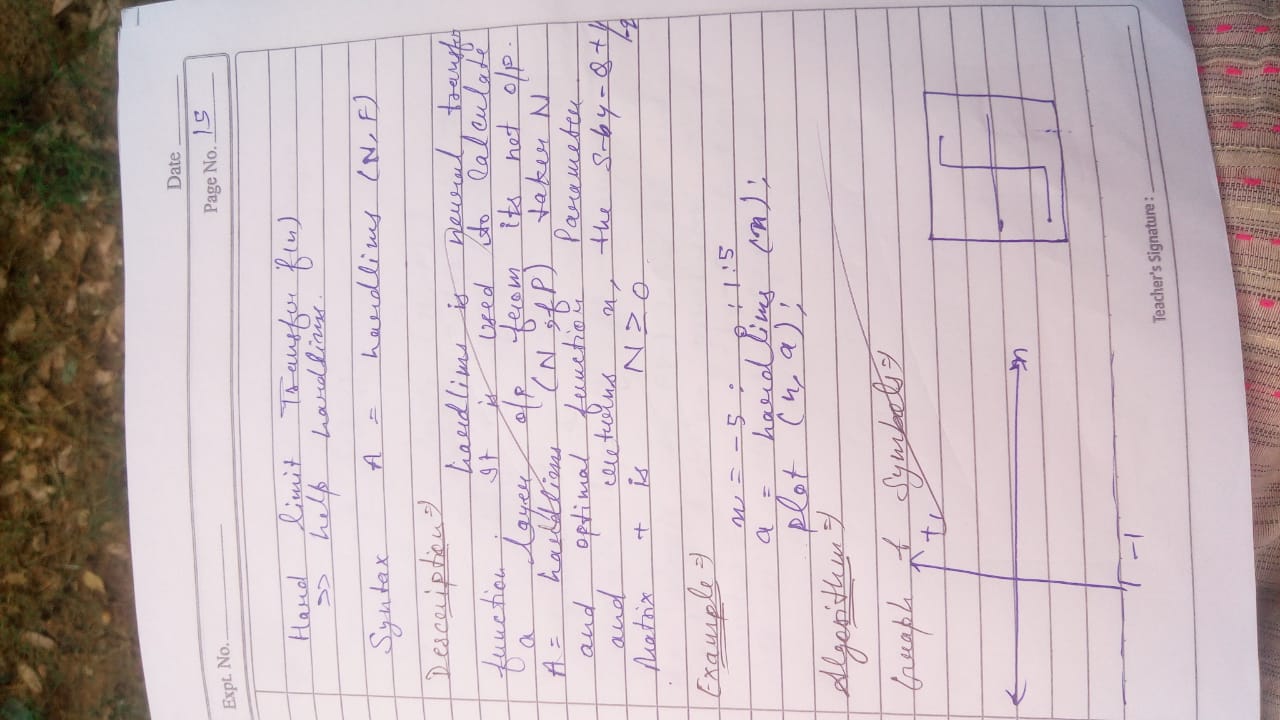 Date
Page No. 15
Expt. No.
Hard limit Transfer f(n)
>> help hardlims.
Syntax A = hardlims (N, F)
Description ⇒
hardlims is neural transfo
function. It is used to Calculate
a layer o/p from its net o/p.
A = hardlims (N ifP) taken N
and optimal function Parameter
and returns n, the S-by-Q +1/-1
Matrix + is N ≥ 0
Example ⇒
n = -5 : 0.1 : 5
a = hardlims (n);
plot (n, a);
Algorithm ⇒
Graph & Symbols ⇒
+1
n
-1
Teacher's Signature :